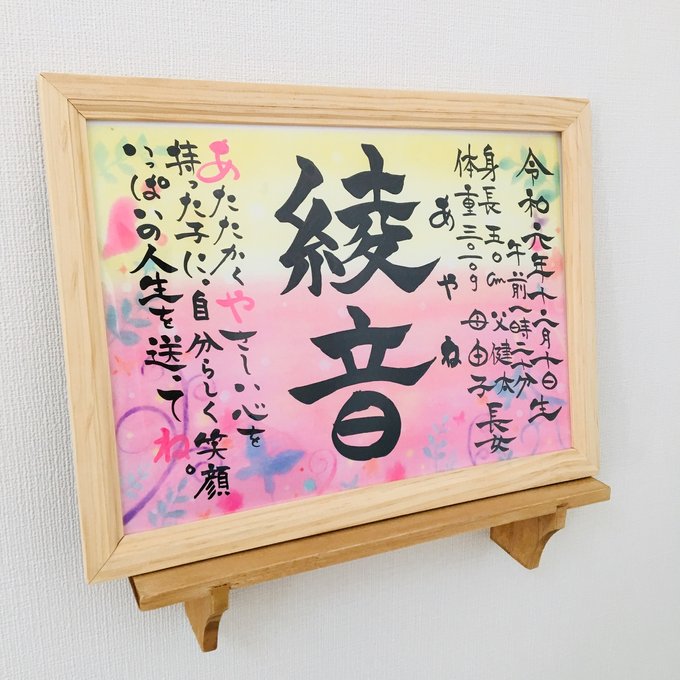 令和元年十二月十日生
午前八時二十分
身長五〇cm 父健太 長女
体重三〇一〇g 母由子
あやね
綾音
あたたかくやさしい心を
持った子に・自分らしく笑顔
いっぱいの人生を送ってね。